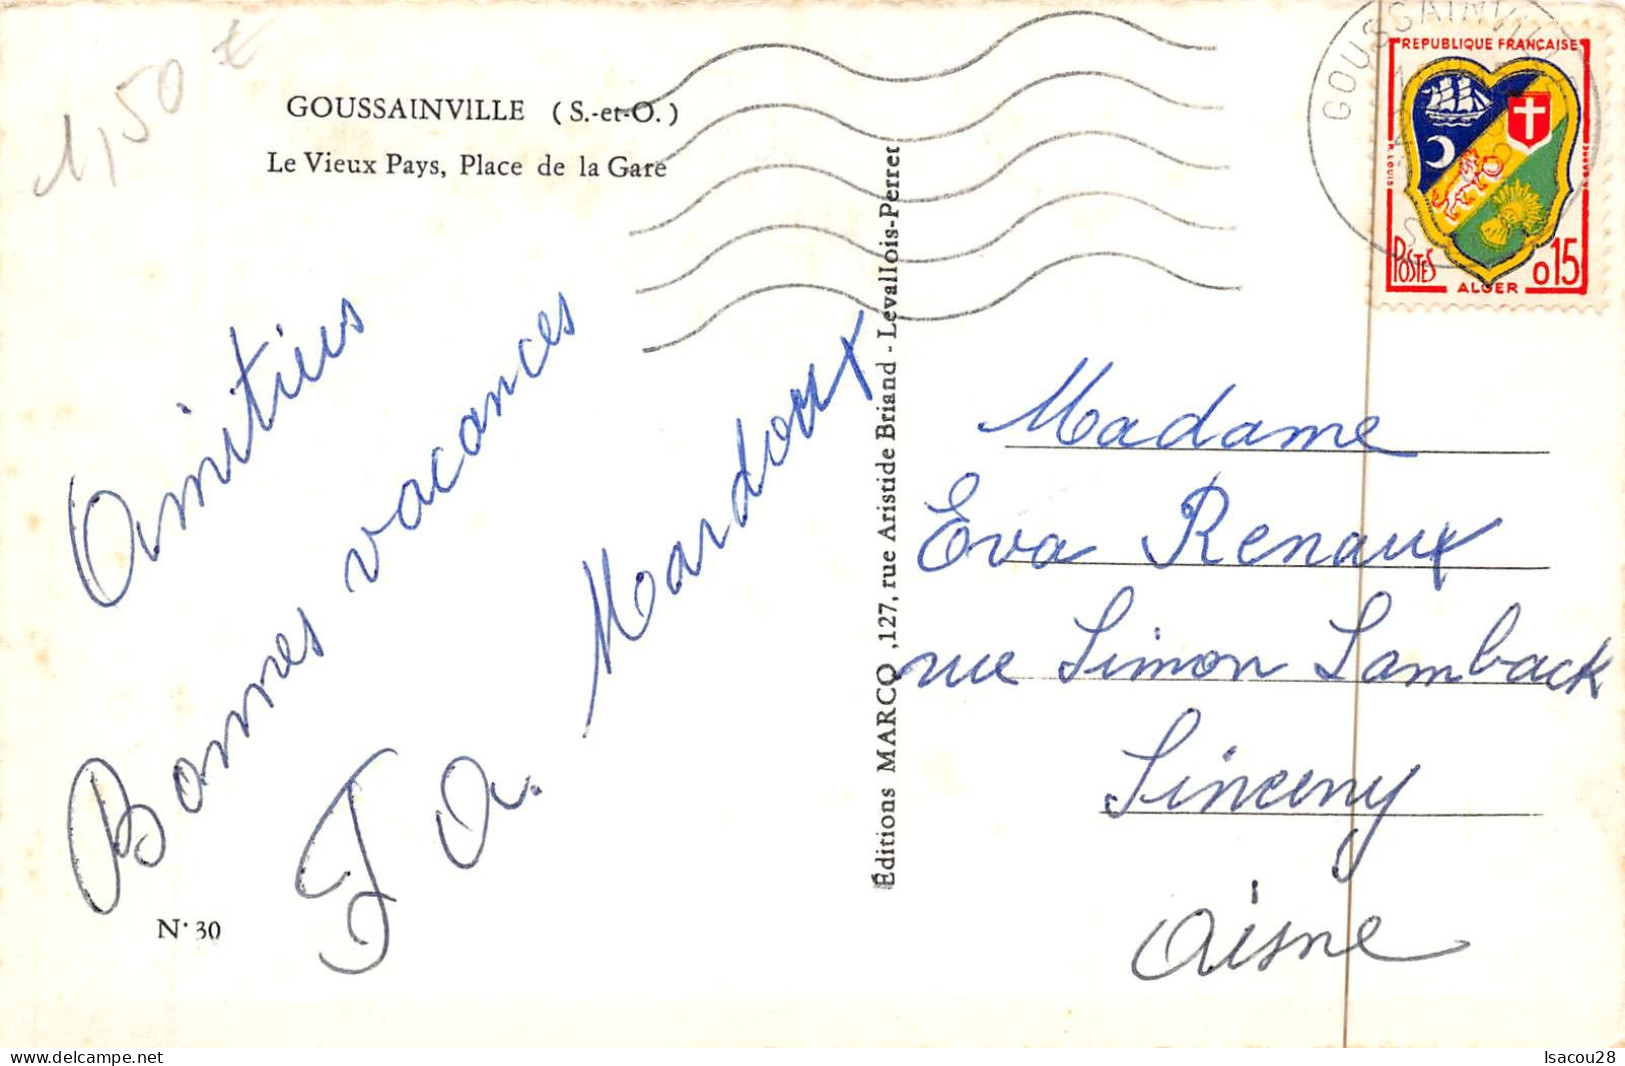 1,50 €
GOUSSAINVILLE (S.-et-O.)
Le Vieux Pays, Place de la Gare
Amitiés
Bonnes vacances
F A. Mardoux
N° 30
Éditions MARCO, 127, rue Aristide Briand - Levallois-Perret
GOUSSAINVILLE
REPUBLIQUE FRANÇAISE
R. LOUIS
POSTES
0,15
ALGER
Madame
Eva Renaux
rue Simon Lamback
Sinceny
Aisne
www.delcampe.net
Isacou28